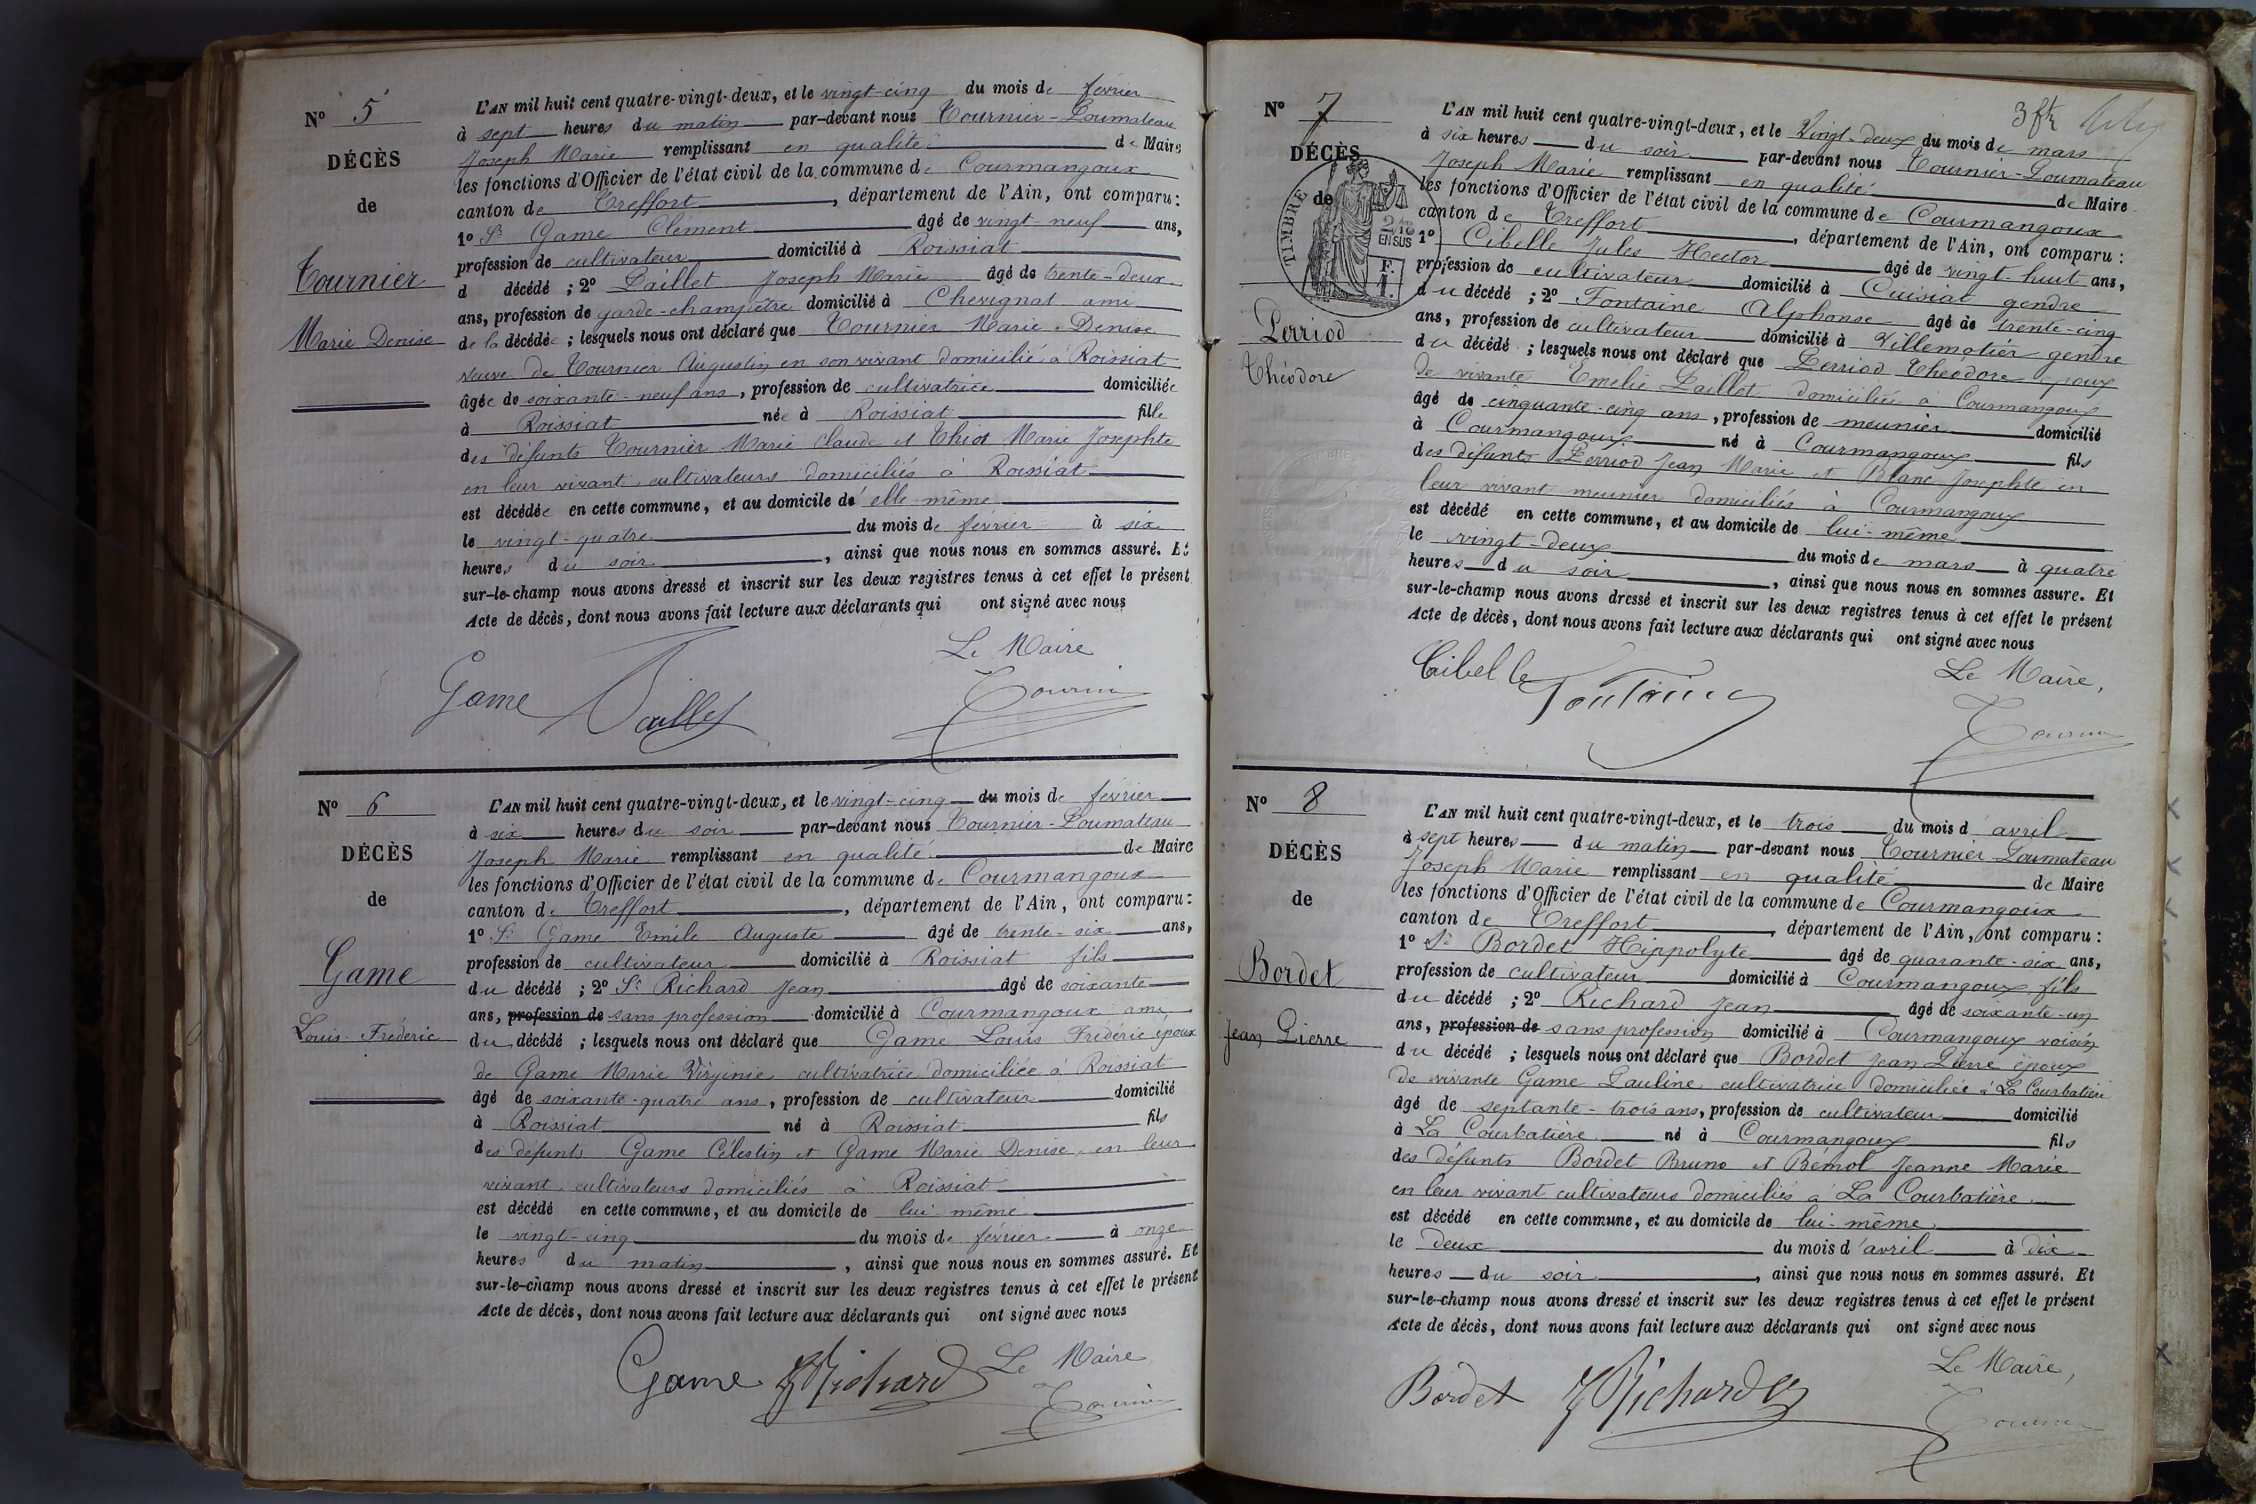 N° 5
DÉCÈS
de
Tournier
Marie Denise
L'AN mil huit cent quatre-vingt-deux, et le vingt-cinq du mois de février
à sept heures du matin par-devant nous Tournier-Poumateau
Joseph Marie remplissant en qualité de Maire
les fonctions d'Officier de l'état civil de la commune de Courmangoux
canton de Treffort, département de l'Ain, ont comparu :
1° Sr Game Clément âgé de vingt-neuf ans,
profession de cultivateur domicilié à Roissiat
d décédé ; 2° Paillet Joseph Marie âgé de trente-deux
ans, profession de garde-champêtre domicilié à Chevignat ami
de la décédée ; lesquels nous ont déclaré que Tournier Marie-Denise
veuve de Tournier Augustin en son vivant domicilié à Roissiat
âgée de soixante-neuf ans, profession de cultivatrice domiciliée
à Roissiat née à Roissiat fille
des défunts Tournier Marie Claude et Thiot Marie Josephte
en leur vivant cultivateurs domiciliés à Roissiat
est décédée en cette commune, et au domicile d'elle-même
le vingt-quatre du mois de février à six
heures du soir, ainsi que nous nous en sommes assuré. Et
sur-le-champ nous avons dressé et inscrit sur les deux registres tenus à cet effet le présent
Acte de décès, dont nous avons fait lecture aux déclarants qui ont signé avec nous
Le Maire
Game Paillet Tournier
N° 6
DÉCÈS
de
Game
Louis-Frédéric
L'AN mil huit cent quatre-vingt-deux, et le vingt-cinq du mois de février
à six heures du soir par-devant nous Tournier-Poumateau
Joseph Marie remplissant en qualité de Maire
les fonctions d'Officier de l'état civil de la commune de Courmangoux
canton de Treffort, département de l'Ain, ont comparu :
1° Sr Game Emile Auguste âgé de trente-six ans,
profession de cultivateur domicilié à Roissiat fils
du décédé ; 2° Sr Richard Jean âgé de soixante
ans, profession de sans profession domicilié à Courmangoux ami
du décédé ; lesquels nous ont déclaré que Game Louis Frédéric époux
de Game Marie Virginie cultivatrice domiciliée à Roissiat
âgé de soixante-quatre ans, profession de cultivateur domicilié
à Roissiat né à Roissiat fils
des défunts Game Célestin et Game Marie Denise, en leur
vivant cultivateurs domiciliés à Roissiat
est décédé en cette commune, et au domicile de lui-même
le vingt-cinq du mois de février à onze
heures du matin, ainsi que nous nous en sommes assuré. Et
sur-le-champ nous avons dressé et inscrit sur les deux registres tenus à cet effet le présent
Acte de décès, dont nous avons fait lecture aux déclarants qui ont signé avec nous
Game Richard Le Maire
Tournier
3 fr
N° 7
DÉCÈS
de
TIMBRE
2/10
EN SUS
F.
1.
Perriod
Théodore
L'AN mil huit cent quatre-vingt-deux, et le Vingt-deux du mois de mars
à six heures du soir par-devant nous Tournier-Poumateau
Joseph Marie remplissant en qualité de Maire
les fonctions d'Officier de l'état civil de la commune de Courmangoux
canton de Treffort, département de l'Ain, ont comparu :
1° Cibelle Jules Hector âgé de vingt-huit ans,
profession de cultivateur domicilié à Cuisiat gendre
du décédé ; 2° Fontaine Alphonse âgé de trente-cinq
ans, profession de cultivateur domicilié à Villemotier gendre
du décédé ; lesquels nous ont déclaré que Perriod Théodore époux
de vivante Emelie Paillet domiciliée à Courmangoux
âgé de cinquante-cinq ans, profession de meunier domicilié
à Courmangoux né à Courmangoux fils
des défunts Perriod Jean Marie et Blanc Josephte en
leur vivant meunier domiciliés à Courmangoux
est décédé en cette commune, et au domicile de lui-même
le vingt-deux du mois de mars à quatre
heures du soir, ainsi que nous nous en sommes assuré. Et
sur-le-champ nous avons dressé et inscrit sur les deux registres tenus à cet effet le présent
Acte de décès, dont nous avons fait lecture aux déclarants qui ont signé avec nous
Cibelle Fontaine Le Maire,
Tournier
N° 8
DÉCÈS
de
Bordet
Jean Pierre
L'AN mil huit cent quatre-vingt-deux, et le trois du mois d'avril
à sept heures du matin par-devant nous Tournier Poumateau
Joseph Marie remplissant en qualité de Maire
les fonctions d'Officier de l'état civil de la commune de Courmangoux
canton de Treffort, département de l'Ain, ont comparu :
1° Sr Bordet Hippolyte âgé de quarante-six ans,
profession de cultivateur domicilié à Courmangoux fils
du décédé ; 2° Richard Jean âgé de soixante-un
ans, profession de sans profession domicilié à Courmangoux voisin
du décédé ; lesquels nous ont déclaré que Bordet Jean Pierre époux
de vivante Game Pauline cultivatrice domiciliée à La Courbatière
âgé de septante-trois ans, profession de cultivateur domicilié
à La Courbatière né à Courmangoux fils
des défunts Bordet Bruno et Bémol Jeanne Marie
en leur vivant cultivateurs domiciliés à La Courbatière
est décédé en cette commune, et au domicile de lui-même
le deux du mois d'avril à dix
heures du soir, ainsi que nous nous en sommes assuré. Et
sur-le-champ nous avons dressé et inscrit sur les deux registres tenus à cet effet le présent
Acte de décès, dont nous avons fait lecture aux déclarants qui ont signé avec nous
Le Maire,
Bordet Richard Tournier